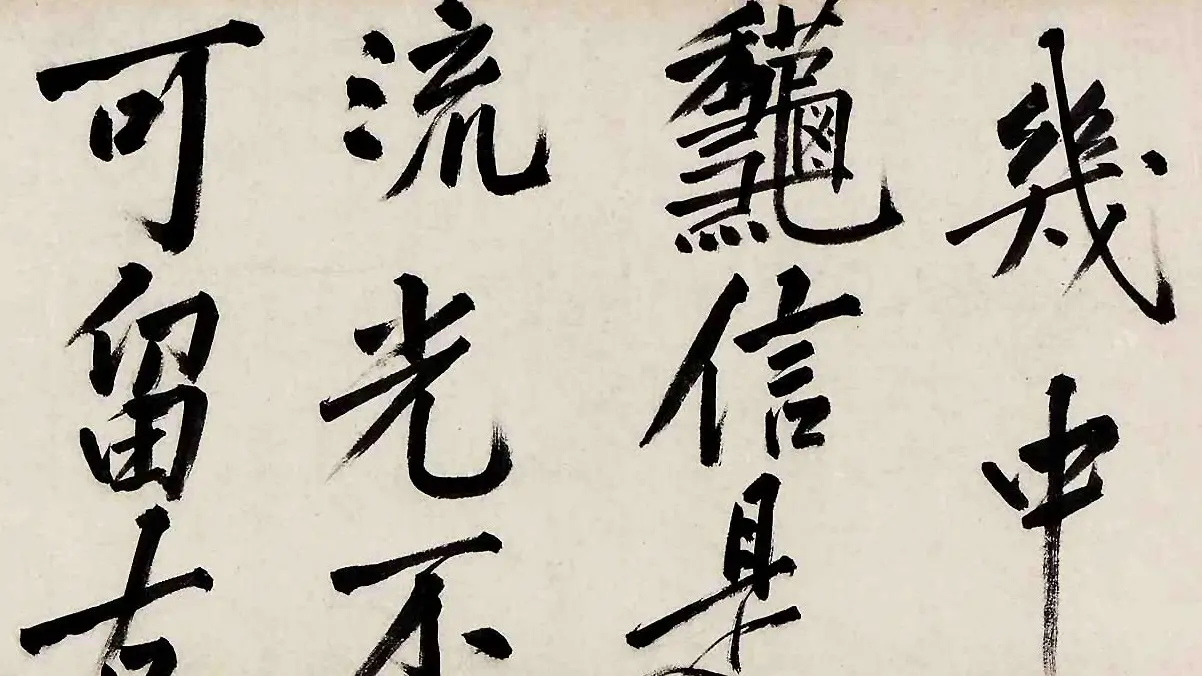 幾中
龝信是
流光不
可留古